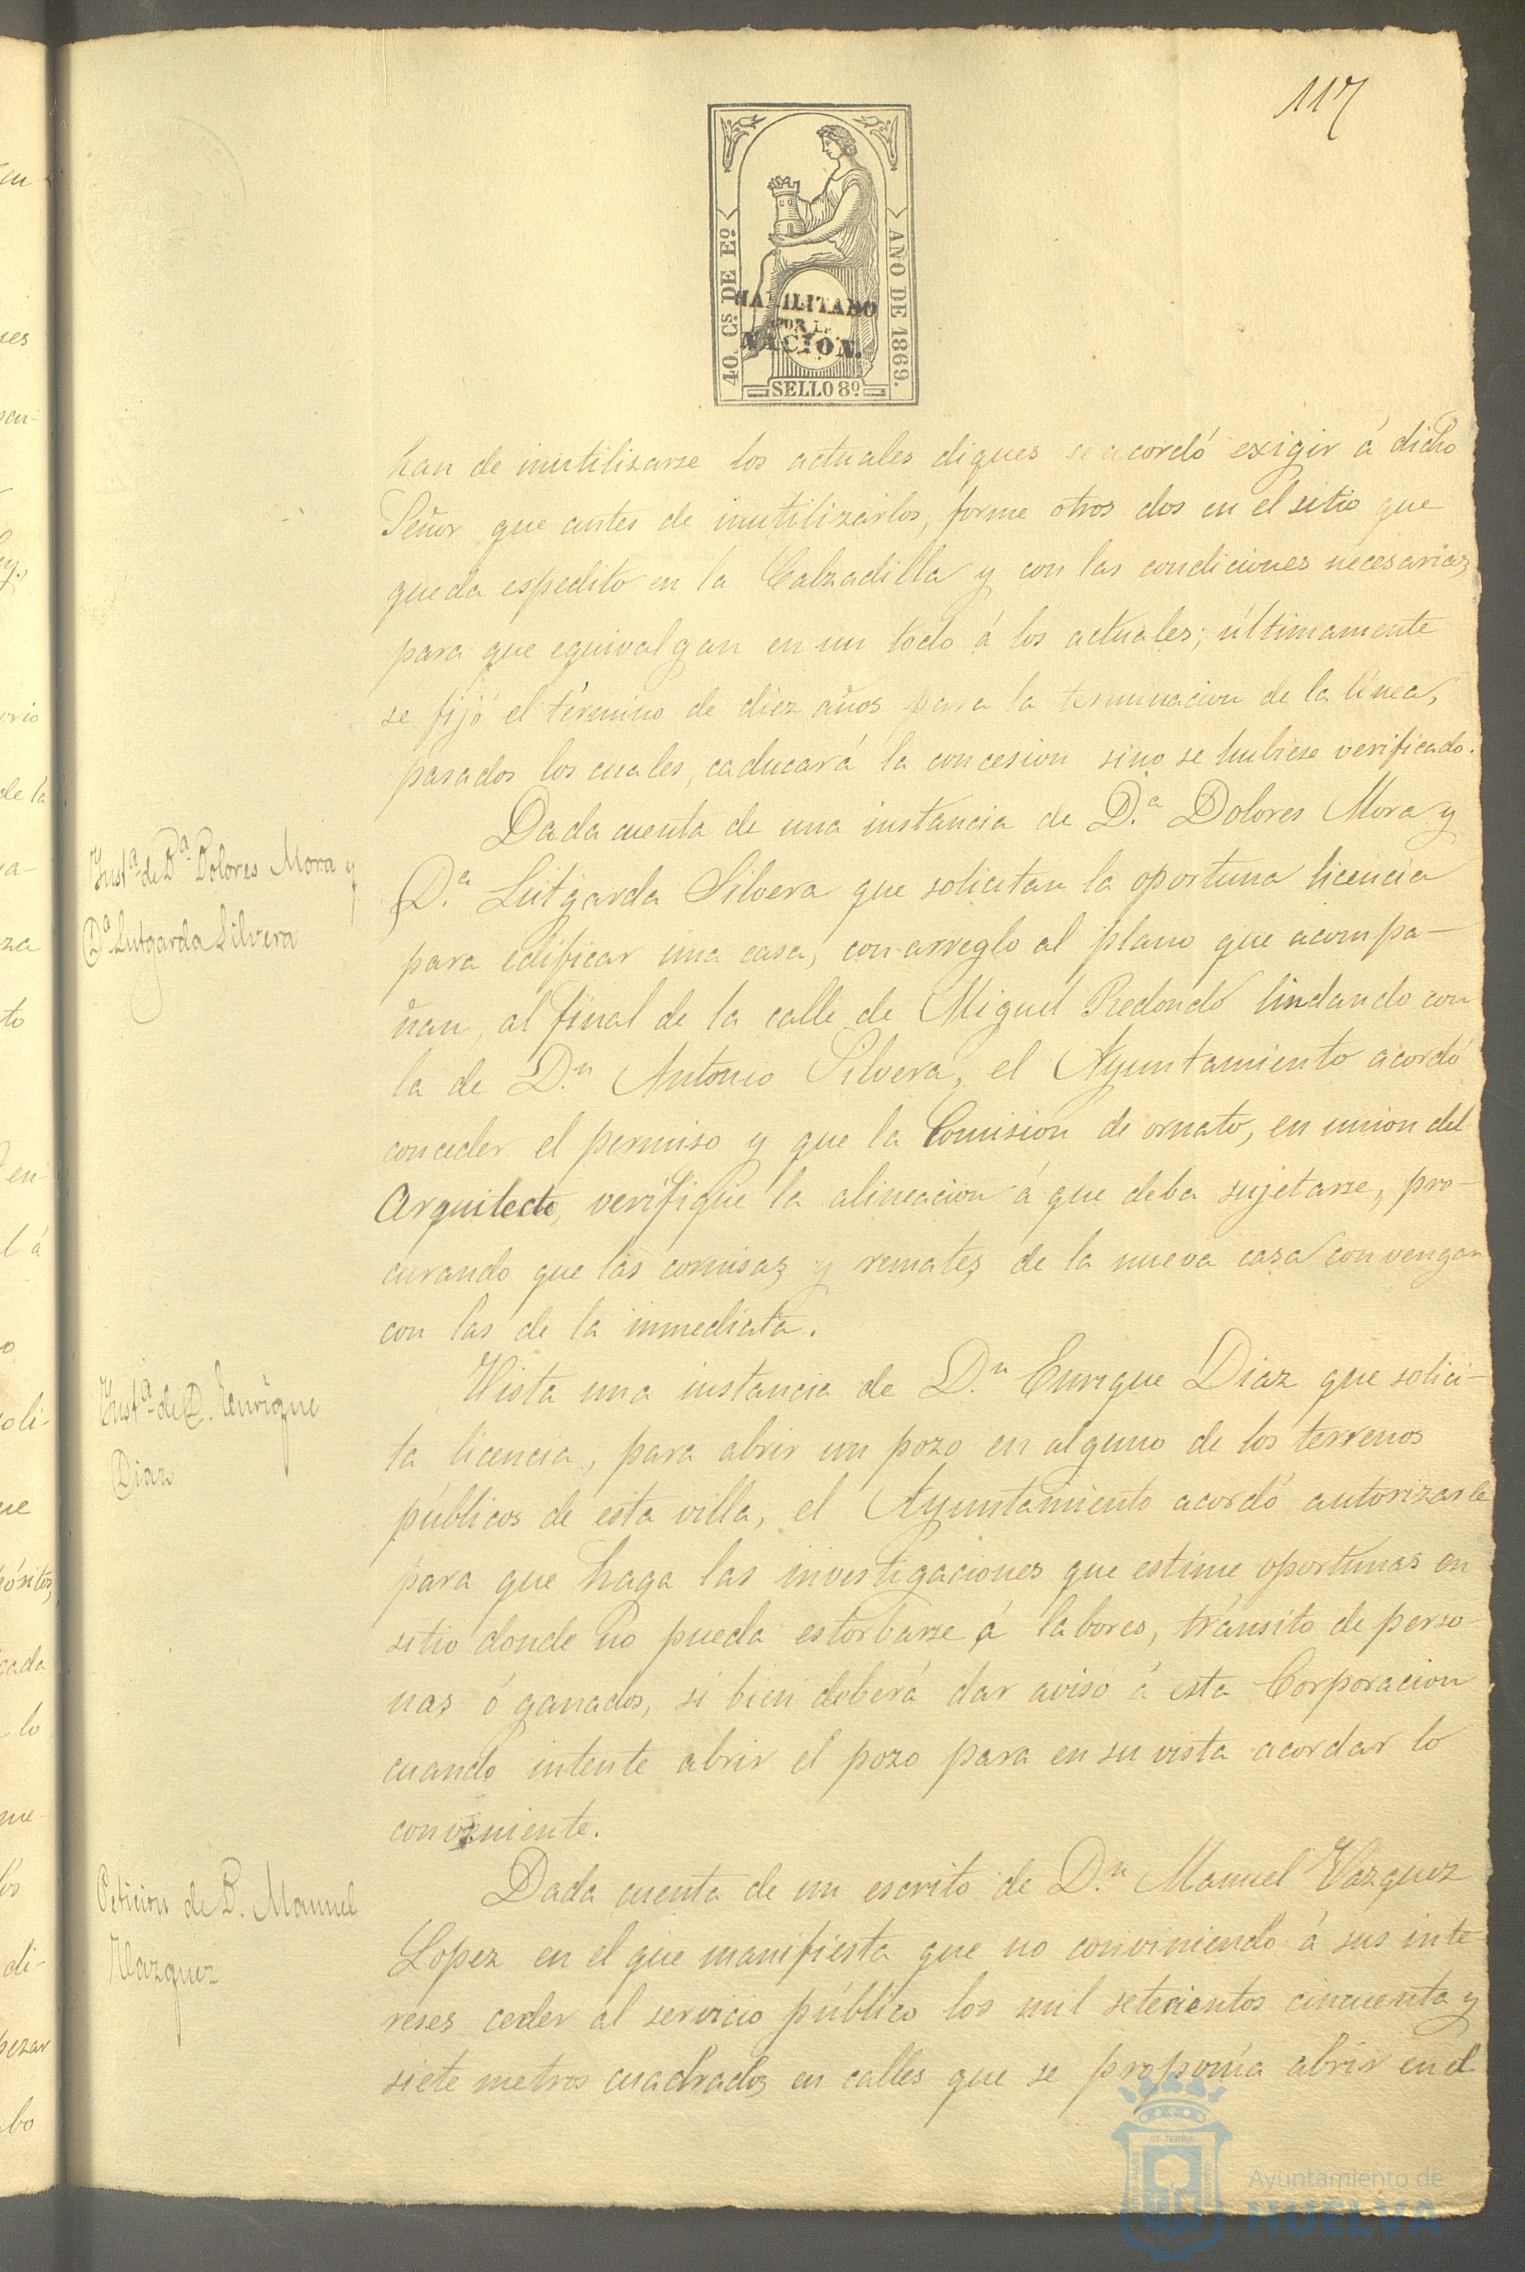 117
40. Cs. DE Eo.
AÑO DE 1869.
HABILITADO
POR LA
NACION.
SELLO 8º
han de inutilizarse los actuales diques se acordó exigir á dicho
Señor que antes de inutilizarlos, forme otros dos en el sitio que
queda espedito en la Calzadilla y con las condiciones necesarias
para que equivalgan en un todo á los actuales; últimamente
se fijó el término de diez años para la terminacion de la linea,
pasados los cuales, caducará la concesion sino se hubiese verificado.
Insta. de Da. Dolores Mora y
Da. Lutgarda Silvera
Dada cuenta de una instancia de D.a Dolores Mora y
D.a Lutgarda Silvera que solicitan la oportuna licencia
para edificar una casa, con arreglo al plano que acompa-
ñan, al final de la calle de Miguel Redondo lindando con
la de D.n Antonio Silvera, el Ayuntamiento acordó
conceder el permiso y que la Comision de ornato, en union del
Arquitecto, verifique la alineacion á que deba sujetarse, pro-
curando que las cornisas y remates de la nueva casa convengan
con las de la inmediata.
Insta. de D. Enrique
Diaz
Vista una instancia de D.n Enrique Diaz que solici-
ta licencia, para abrir un pozo en alguno de los terrenos
públicos de esta villa, el Ayuntamiento acordó autorizarle
para que haga las investigaciones que estime oportunas en
sitio donde no pueda estorbarse á labores, tránsito de perso-
nas ó ganados, si bien deberá dar aviso á esta Corporacion
cuando intente abrir el pozo para en su vista acordar lo
conveniente.
Peticion de D. Manuel
Vazquez
Dada cuenta de un escrito de D.n Manuel Vazquez
Lopez en el que manifiesta que no conviniendo á sus inte-
reses ceder al servicio público los mil setecientos cincuenta y
siete metros cuadrados en calles que se proponia abrir en el
Ayuntamiento de
HUELVA